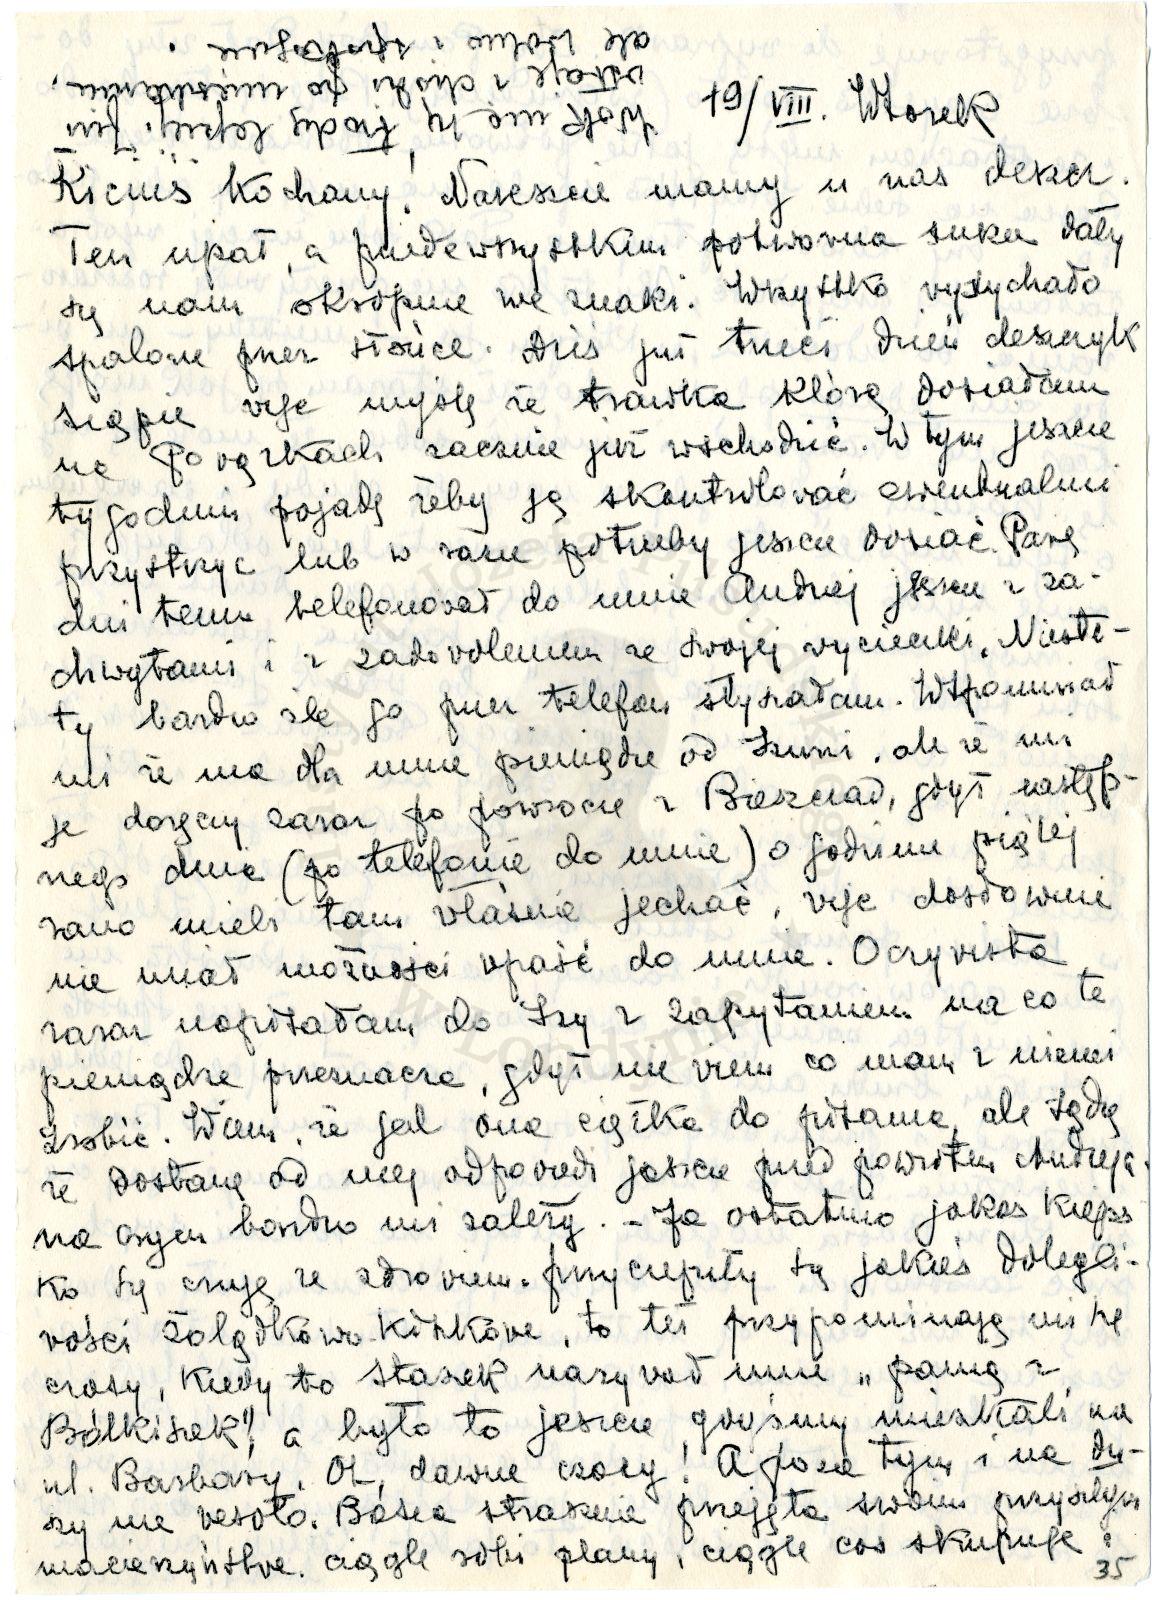 19/VIII. Wtorek
Kiciuś Kochany! Nareszcie mamy u nas deszcz.
Ten upał, a przedewszystkim potworna susza dały
się nam okropnie we znaki. Wszystko wysychało
spalone przez słońce. Dziś już trzeci dzień deszczyk
siąpie więc myślę że trawka którą dosiałam
na Powązkach zacznie już wschodzić. W tym jeszcze
tygodniu pojadę żeby ją skontrolować ewentualnie
przystrzyc lub w razie potrzeby jeszcze dosiać. Parę
dni temu telefonował do mnie Andrzej jeszcze z za-
chwytami i z zadowoleniem ze swojej wycieczki. Nieste-
ty bardzo źle go przez telefon słyszałam. Wspomniał
mi że ma dla mnie pieniądze od Izuni, ale że mi
je doręczy zaraz po powrocie z Bieszczad, gdyż następ-
nego dnia (po telefonie do mnie) o godzinie piątej
rano mieli tam właśnie jechać, więc dosłownie
nie miał możności wpaść do mnie. Oczywista
zaraz napisałam do Izy z zapytaniem na co te
pieniądze przeznacza, gdyż nie wiem co mam z niemi
zrobić. Wiem, że jest ona ciężka do pisania, ale sądzę
że dostanę od niej odpowiedź jeszcze przed powrotem Andrzeja.
na czym bardzo mi zależy. – Ja ostatnio jakoś kieps
ko się czuję ze zdrowiem. Przyczepiły się jakieś dolegli-
wości żołądkowo kiszkowe, to też przypominają mi się
czasy, kiedy to Staszek nazywał mnie „panią z
Bólkiszek", a było to jeszcze gdyśmy mieszkali na
ul. Barbary. Ot, dawne czasy! A poza tym i na du-
szy nie wesoło. Basia strasznie przejęta swoim przyszłym
macierzyństwem. ciągle robi plany, ciągle coś skupuje i
35
Wacek ma się trochę lepiej. Już
wstaje i chodzi po mieszkaniu,
ale wolno i ostrożnie.